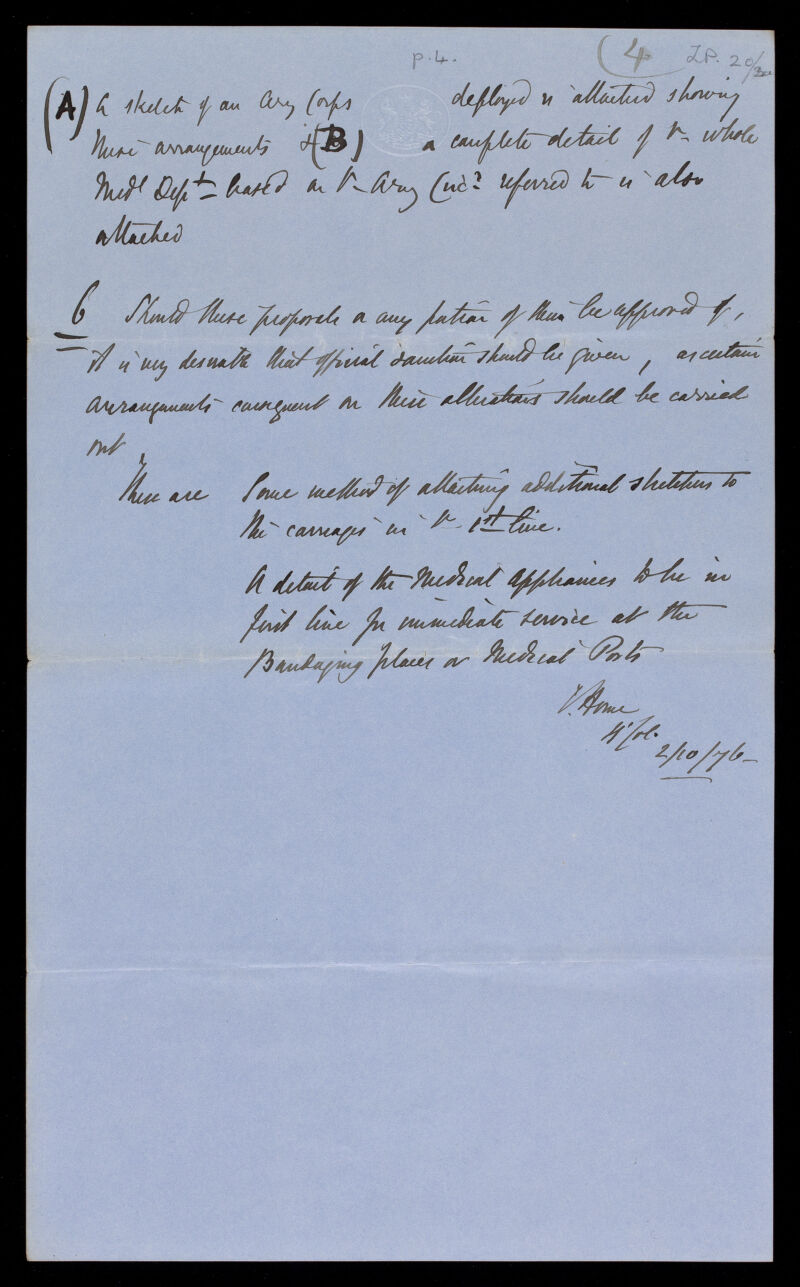 p.4. (4 LP. 20/
(A) A sketch of an Army Corps deployed is attached showing
these arrangements & (B) a complete detail of the whole
Medl Dept based on the Army Circ referred to is also
attached
6 Should these proposals or any portion of them be approved of,
it is very desirable that official sanction should be given, as certain
arrangements consequent on these alterations should be carried
out.
These are Some method of attaching additional stretchers to
the carriages in the 1st line.
A detail of the Medical Appliances to be in
first line for immediate service at the
Bandaging places or Medical Posts
Home
2/10/76